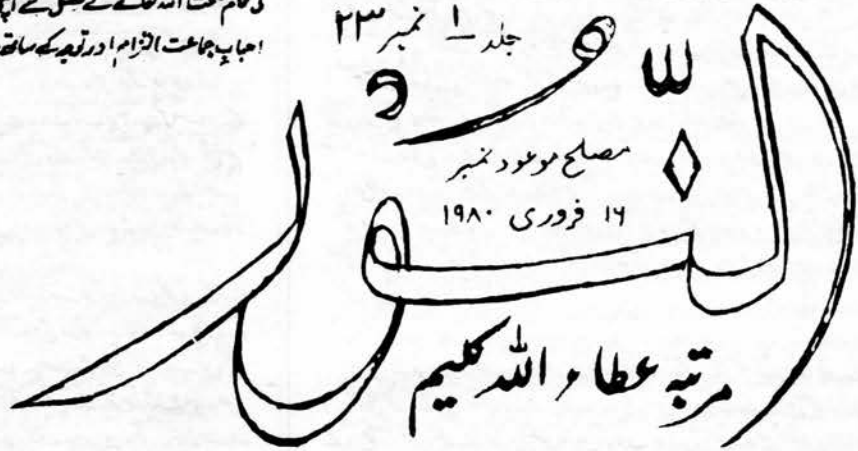 احبابِ جماعت التزام اور توجہ کے ساتھ
جلد ۱ نمبر ۲۳
النّور
مصلح موعود نمبر
۱۶ فروری ۱۹۸۰
مرتبہ عطاء اللہ کلیم